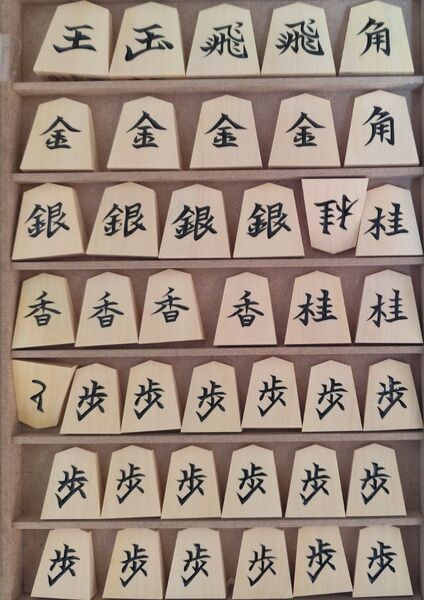 王 玉 飛 飛 角
金 金 金 金 角
銀 銀 銀 銀 桂 桂
香 香 香 香 桂 桂
と 歩 歩 歩 歩 歩 歩
歩 歩 歩 歩 歩 歩
歩 歩 歩 歩 歩 歩